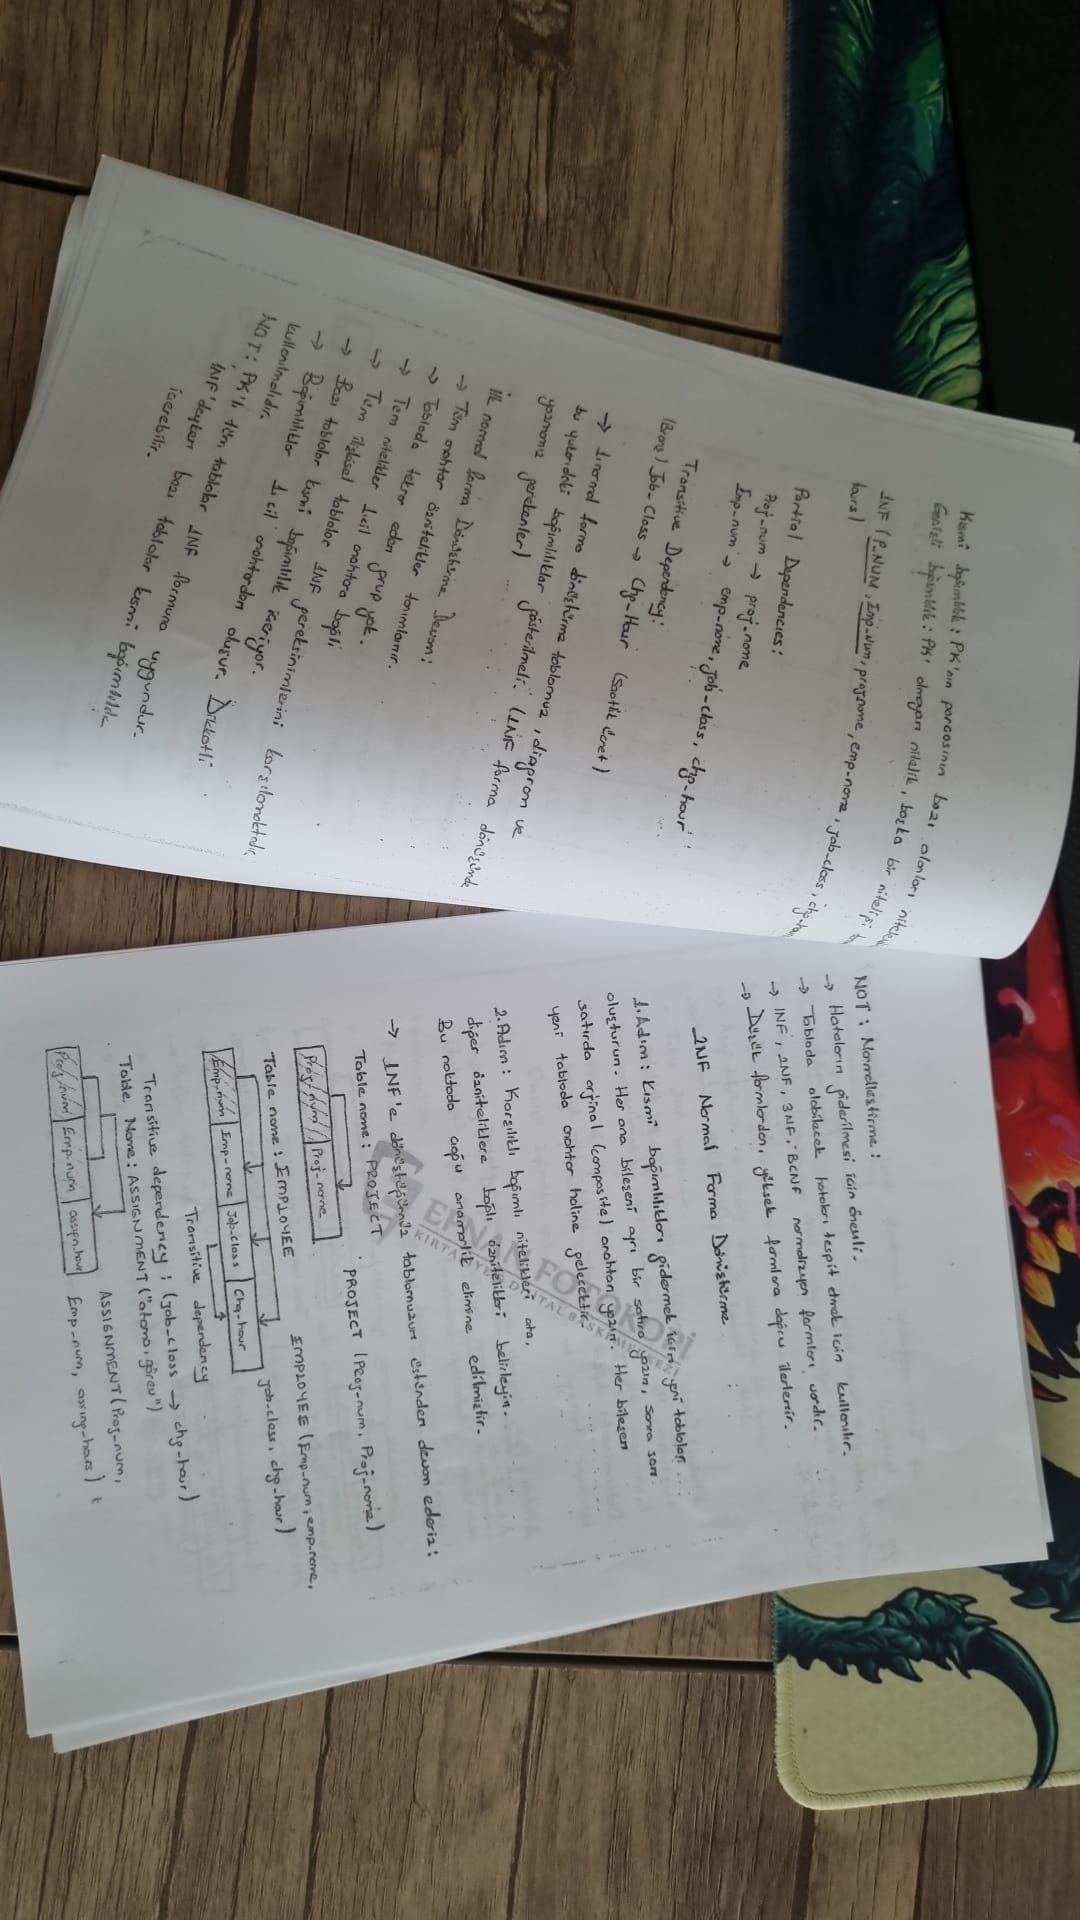 Kısmi bağımlılık : PK'nın parçasının bazı alanları
Geçişli bağımlılık : PK'ı olmayan nitelik, başka bir niteliği
1NF (P-NUM, Emp-Num, projname, emp-name, job-class, chg-hour,
hours)
Partial Dependencies :
Proj-num → proj-name
Emp-num → emp-name, job-class, chg-hour
Transitive Dependency :
Job-Class → Chg-Hour (Saatlik ücret)
→ 1.normal forma dönüştürme tablomuz, diagram ve
bu yukarıdaki bağımlılıklar gösterilmeli. (1NF forma dönüşünde
yazmamız gerekenler)
İlk normal forma Dönüştürme Devam :
→ Tüm anahtar öznitelikler tanımlanır.
→ Tabloda tekrar eden grup yok.
→ Tüm nitelikler 1.cil anahtara bağlı
→ Tüm ilişkisel tablolar 1NF gereksinimlerini karşılamaktadır
→ Bazı tablolar kısmi bağımlılık içeriyor.
→ Bağımlılıklar 1.cil anahtardan oluşur. Dikkatli
kullanılmalıdır.
NOT : PK'lı tüm tablolar 1NF formuna uygundur.
1NF'deyken bazı tablolar kısmi bağımlılık
içerebilir.
NOT : Normalleştirme :
→ Hataların giderilmesi için önemli.
→ Tabloda olabilecek hataları tespit etmek için kullanılır.
→ 1NF, 2NF, 3NF, BCNF normalizasyon formları vardır.
→ Düşük formlardan, yüksek formlara doğru ilerlenir.
2NF Normal Forma Dönüştürme
1.Adım : Kısmi bağımlılıkları gidermek için yeni tabloları
oluşturun. Her ana bileşeni ayrı bir satıra yazın, sonra son
satırda orjinal (composite) anahtarı yazın. Her bileşen
yeni tabloda anahtar haline gelecektir.
2.Adım : Karşılıklı bağımlı nitelikleri ata,
diğer özniteliklere bağlı öznitelikleri belirleyin.
Bu noktada çoğu anamorlik elimine edilmiştir.
→ 1NF'e dönüştüğümüz tablomuzun üstünden devam ederiz :
Table name : PROJECT
PROJECT (Proj-num, Proj-name)
Proj-num Proj-name
Table name : EMPLOYEE
EMPLOYEE (Emp-num, emp-name,
job-class, chg-hour)
Emp-num Emp-name Job-class Chg-hour
Transitive dependency
Transitive dependency : (job-class → chg-hour)
Table Name : ASSIGNMENT ("atama, görev")
ASSIGNMENT (Proj-num,
Emp-num, assing-hours)
Proj-num Emp-num assign-hour
ERHAN FOTOKOPİ
KIRTASİYE DİJİTAL BASKI MERKEZİ